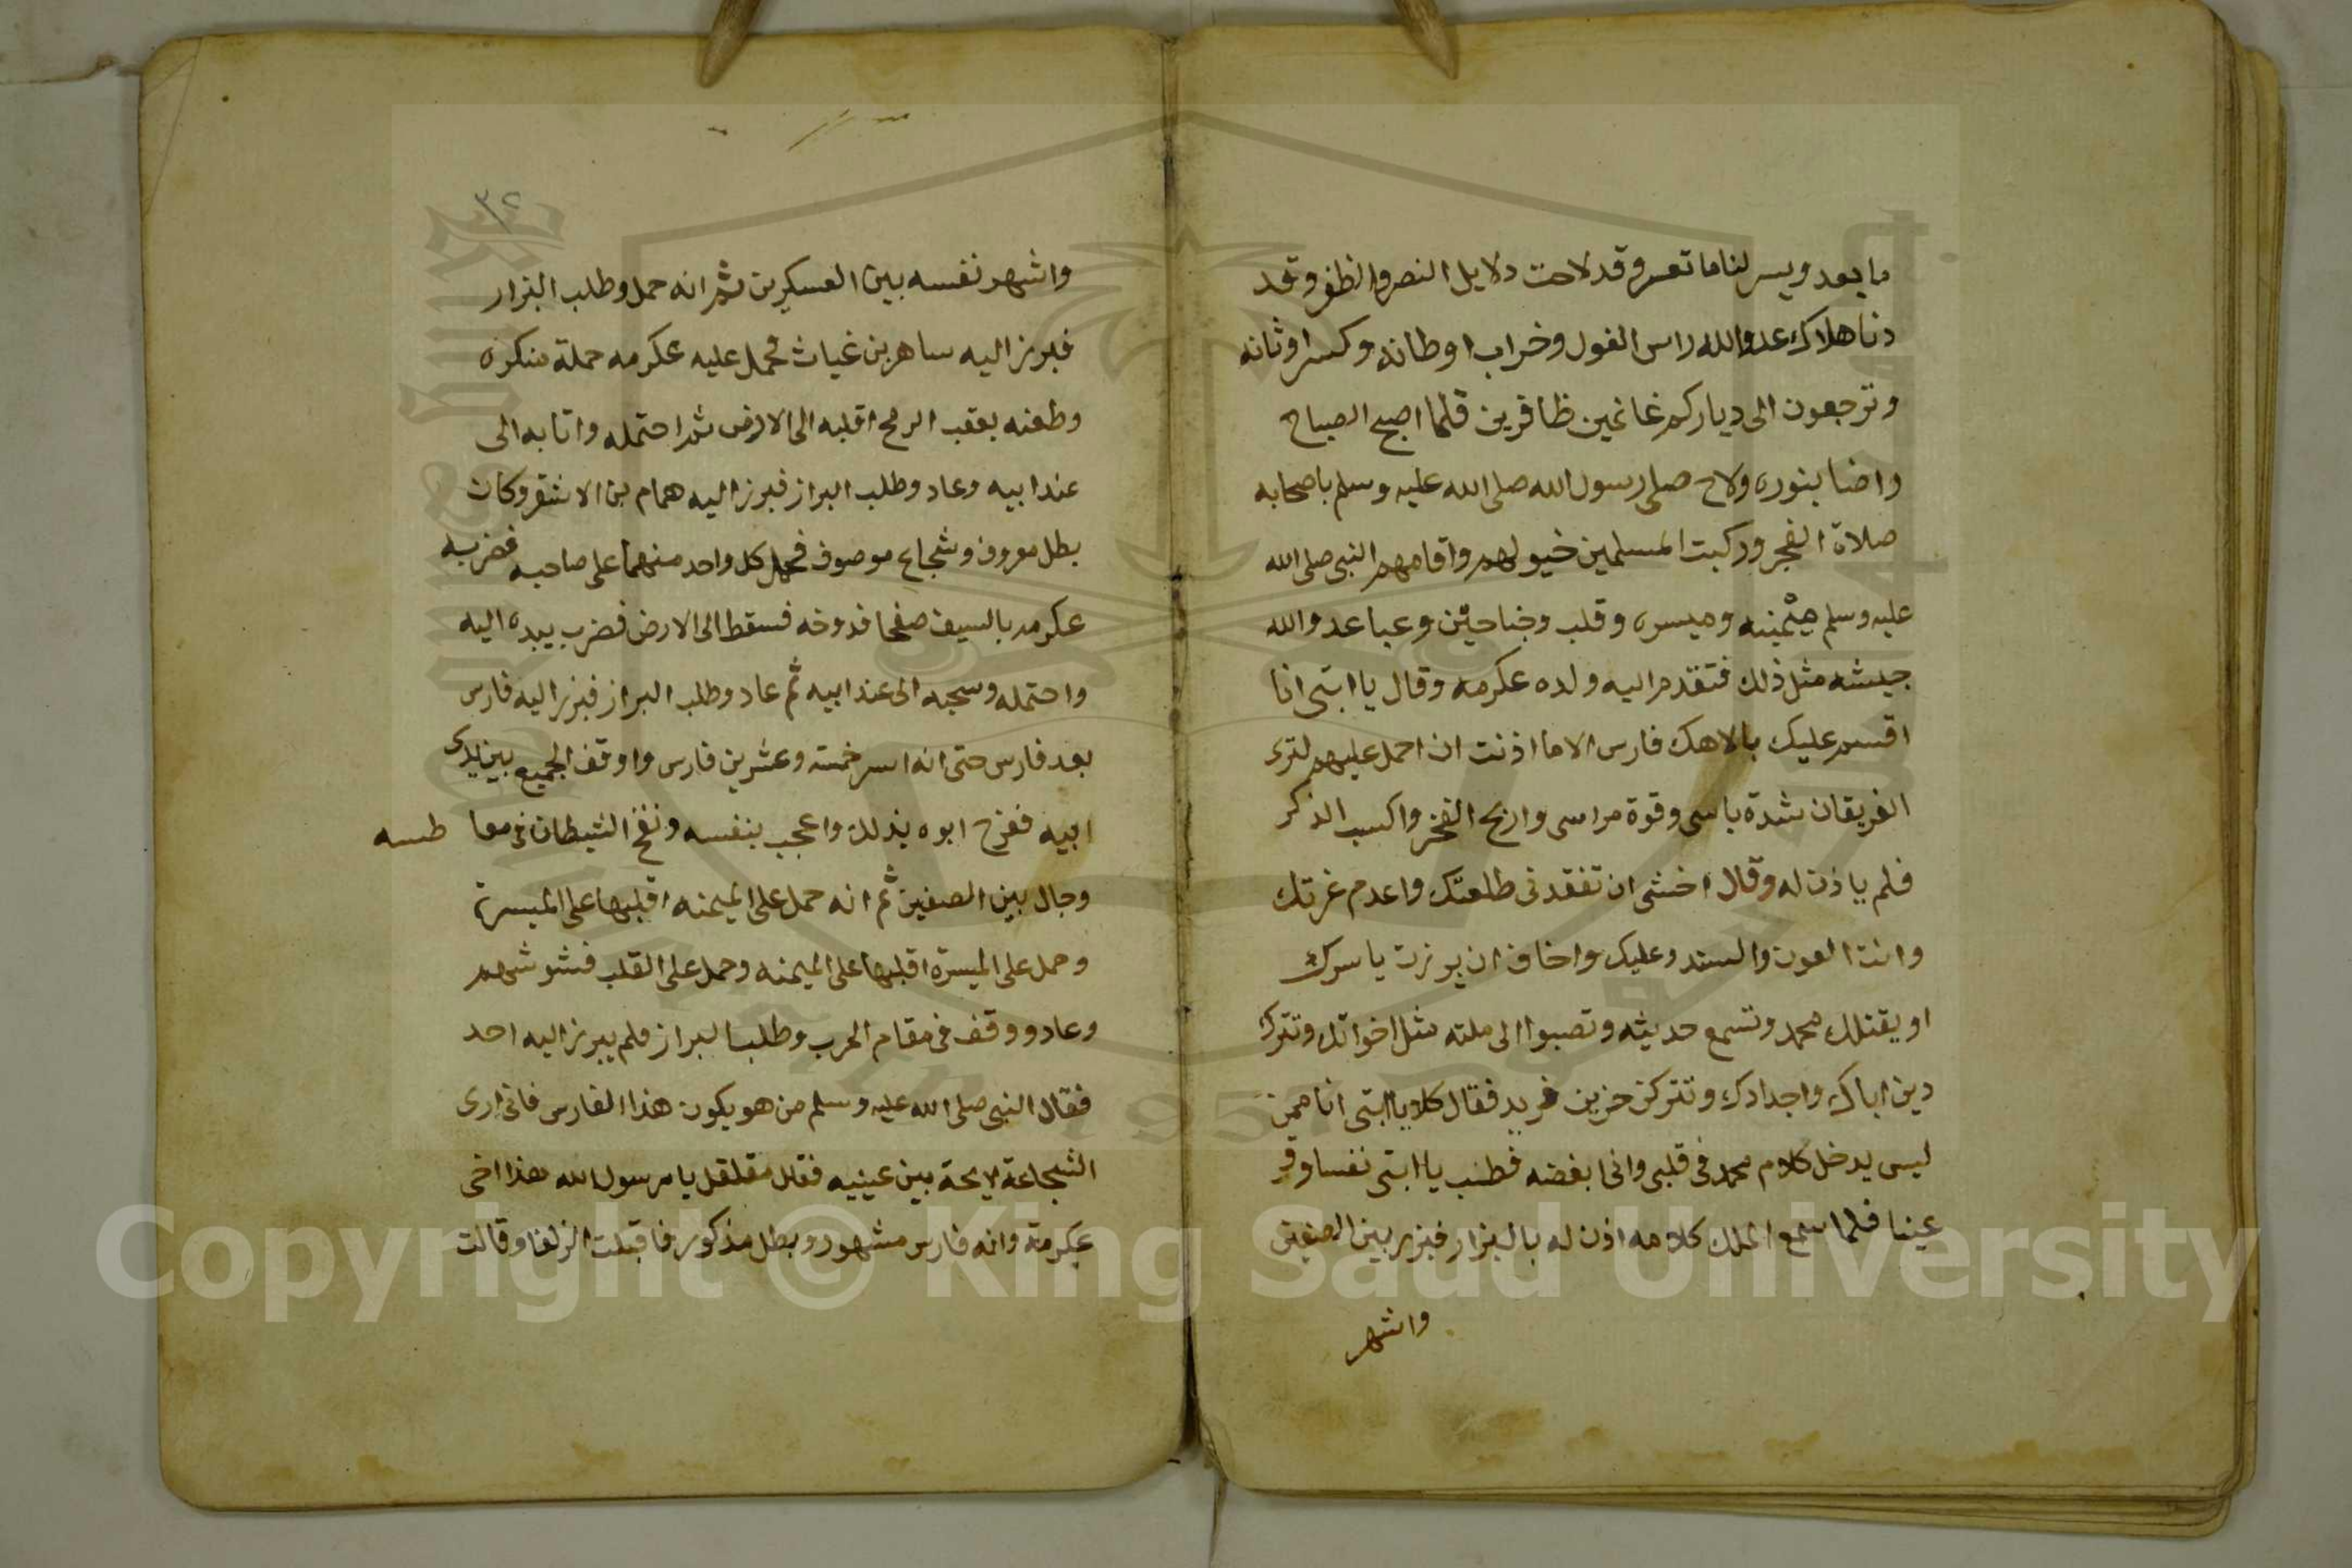 ما بعد ويسر لنا ما تعسر وقد لاحت دلايل النصر والظفر وقد
دنا هلاك عدو الله راس الغول وخراب اوطانه وكسر اوثانه
وترجعون الى دياركم غانمين ظافرين فلما اصبح الصباح
واضا بنوره ولاح صلى رسول الله صلى الله عليه وسلم باصحابه
صلاة الفجر وركبت المسلمين خيولهم واقامهم النبي صلى الله
عليه وسلم ميمنه وميسره وقلب وجناحين وعبا عدو الله
جيشه مثل ذلك فتقدم اليه ولده عكرمه وقال يا ابتى انا
اقسم عليك بالاهك فارس الا ما اذنت ان احمل عليهم لترى
الفريقان شدة باسى وقوة مراسى واربح الفخر واكسب الذكر
فلم ياذن له وقال اخشى ان تفقدنى طلعتك واعدم غرتك
وانت العون والسند وعليك واخاف ان برزت ياسرك
او يقتلك محمد وتسمع حديثه وتصبوا الى ملته مثل اخواتك وتترك
دين اباك واجدادك وتتركنى حزين فريد فقال كلا يا ابتى انا ممن
ليس يدخل كلام محمد فى قلبى وانى ابغضه فطب يا ابتى نفسا وقر
عينا فلما سمع الملك كلامه اذن له بالبزار فبرز بين الصفين
واشهر
٣٢
واشهر نفسه بين العسكرين ثم انه حمل وطلب البزار
فبرز اليه ساهر بن غياث فحمل عليه عكرمه حملة منكره
وطعنه بعقب الرمح اقلبه الى الارض ثم احتمله واتا به الى
عند ابيه وعاد وطلب البراز فبرز اليه همام بن الاشقر وكان
بطل معروف وشجاع موصوف فحمل كل واحد منهما على صاحبه فضربه
عكرمه بالسيف صفحا فدوخه فسقط الى الارض فضرب بيده اليه
واحتمله وسحبه الى عند ابيه ثم عاد وطلب البراز فبرز اليه فارس
بعد فارس حتى انه اسر خمسة وعشرين فارس واوقف الجميع بين يدى
ابيه ففرح ابوه بذلك واعجب بنفسه ونفخ الشيطان فى معا طسه
وجال بين الصفين ثم انه حمل على الميمنه اقلبها على الميسرة
وحمل على الميسرة اقلبها على الميمنه وحمل على القلب فشوشهم
وعاد ووقف فى مقام الحرب وطلب البراز فلم يبرز اليه احد
فقال النبي صلى الله عليه وسلم من هو يكون هذا الفارس فانى ارى
الشجاعة لايحة بين عينيه فقال مقلقل يا رسول الله هذا اخى
عكرمة وانه فارس مشهور وبطل مذكور فاقبلت الزلفا وقالت
Copyright © King Saud University